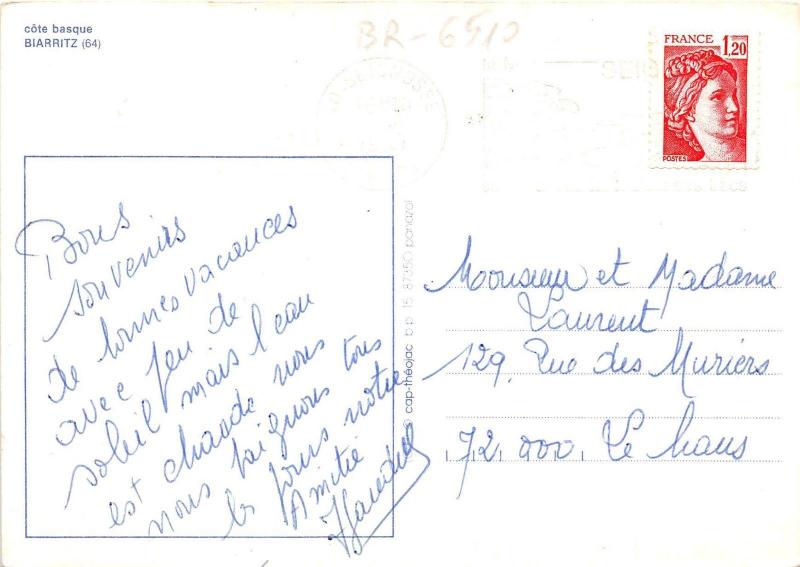 côte basque
BIARRITZ (64)
BR-6510
FRANCE
1,20
POSTES
SEIGNOSSE
Bons
souvenirs
de bonnes vacances
avec peu de
soleil mais l'eau
est chaude nous
nous baignons tous
les jours notre
Amitié
© cap-théojac b.p. 15 87350 panazol
Monsieur et Madame
Laurent
129, Rue des Muriers
72.000. Le Mans